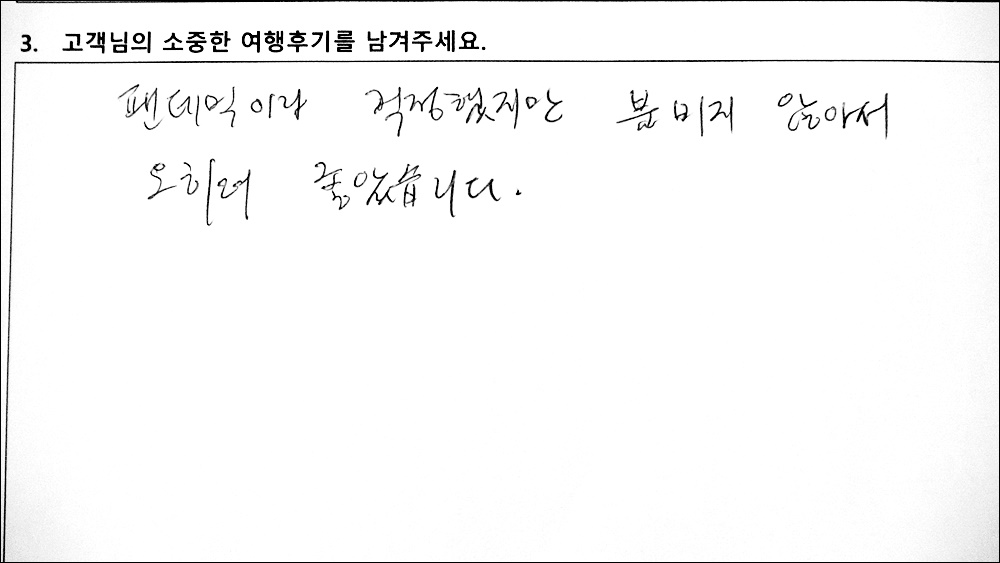 3. 고객님의 소중한 여행후기를 남겨주세요.
팬데믹이라 걱정했지만 붐비지 않아서
오히려 좋았습니다.